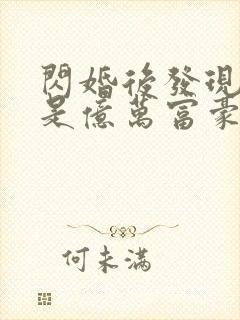 閃婚後發現
是億萬富豪
何未滿